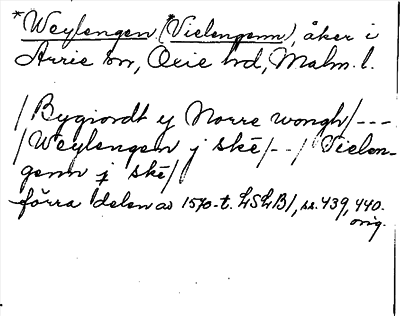 *Weylengen (*Vielengenn), åker i
Arrie sn, Oxie hd, Malm. l.
/Bygiordt y Norre wongh/---
/Weylengen j skē/--/Vielen-
genn j skē/
förra delen av 1570-t. LSLB/, ss. 439, 440.
orig.